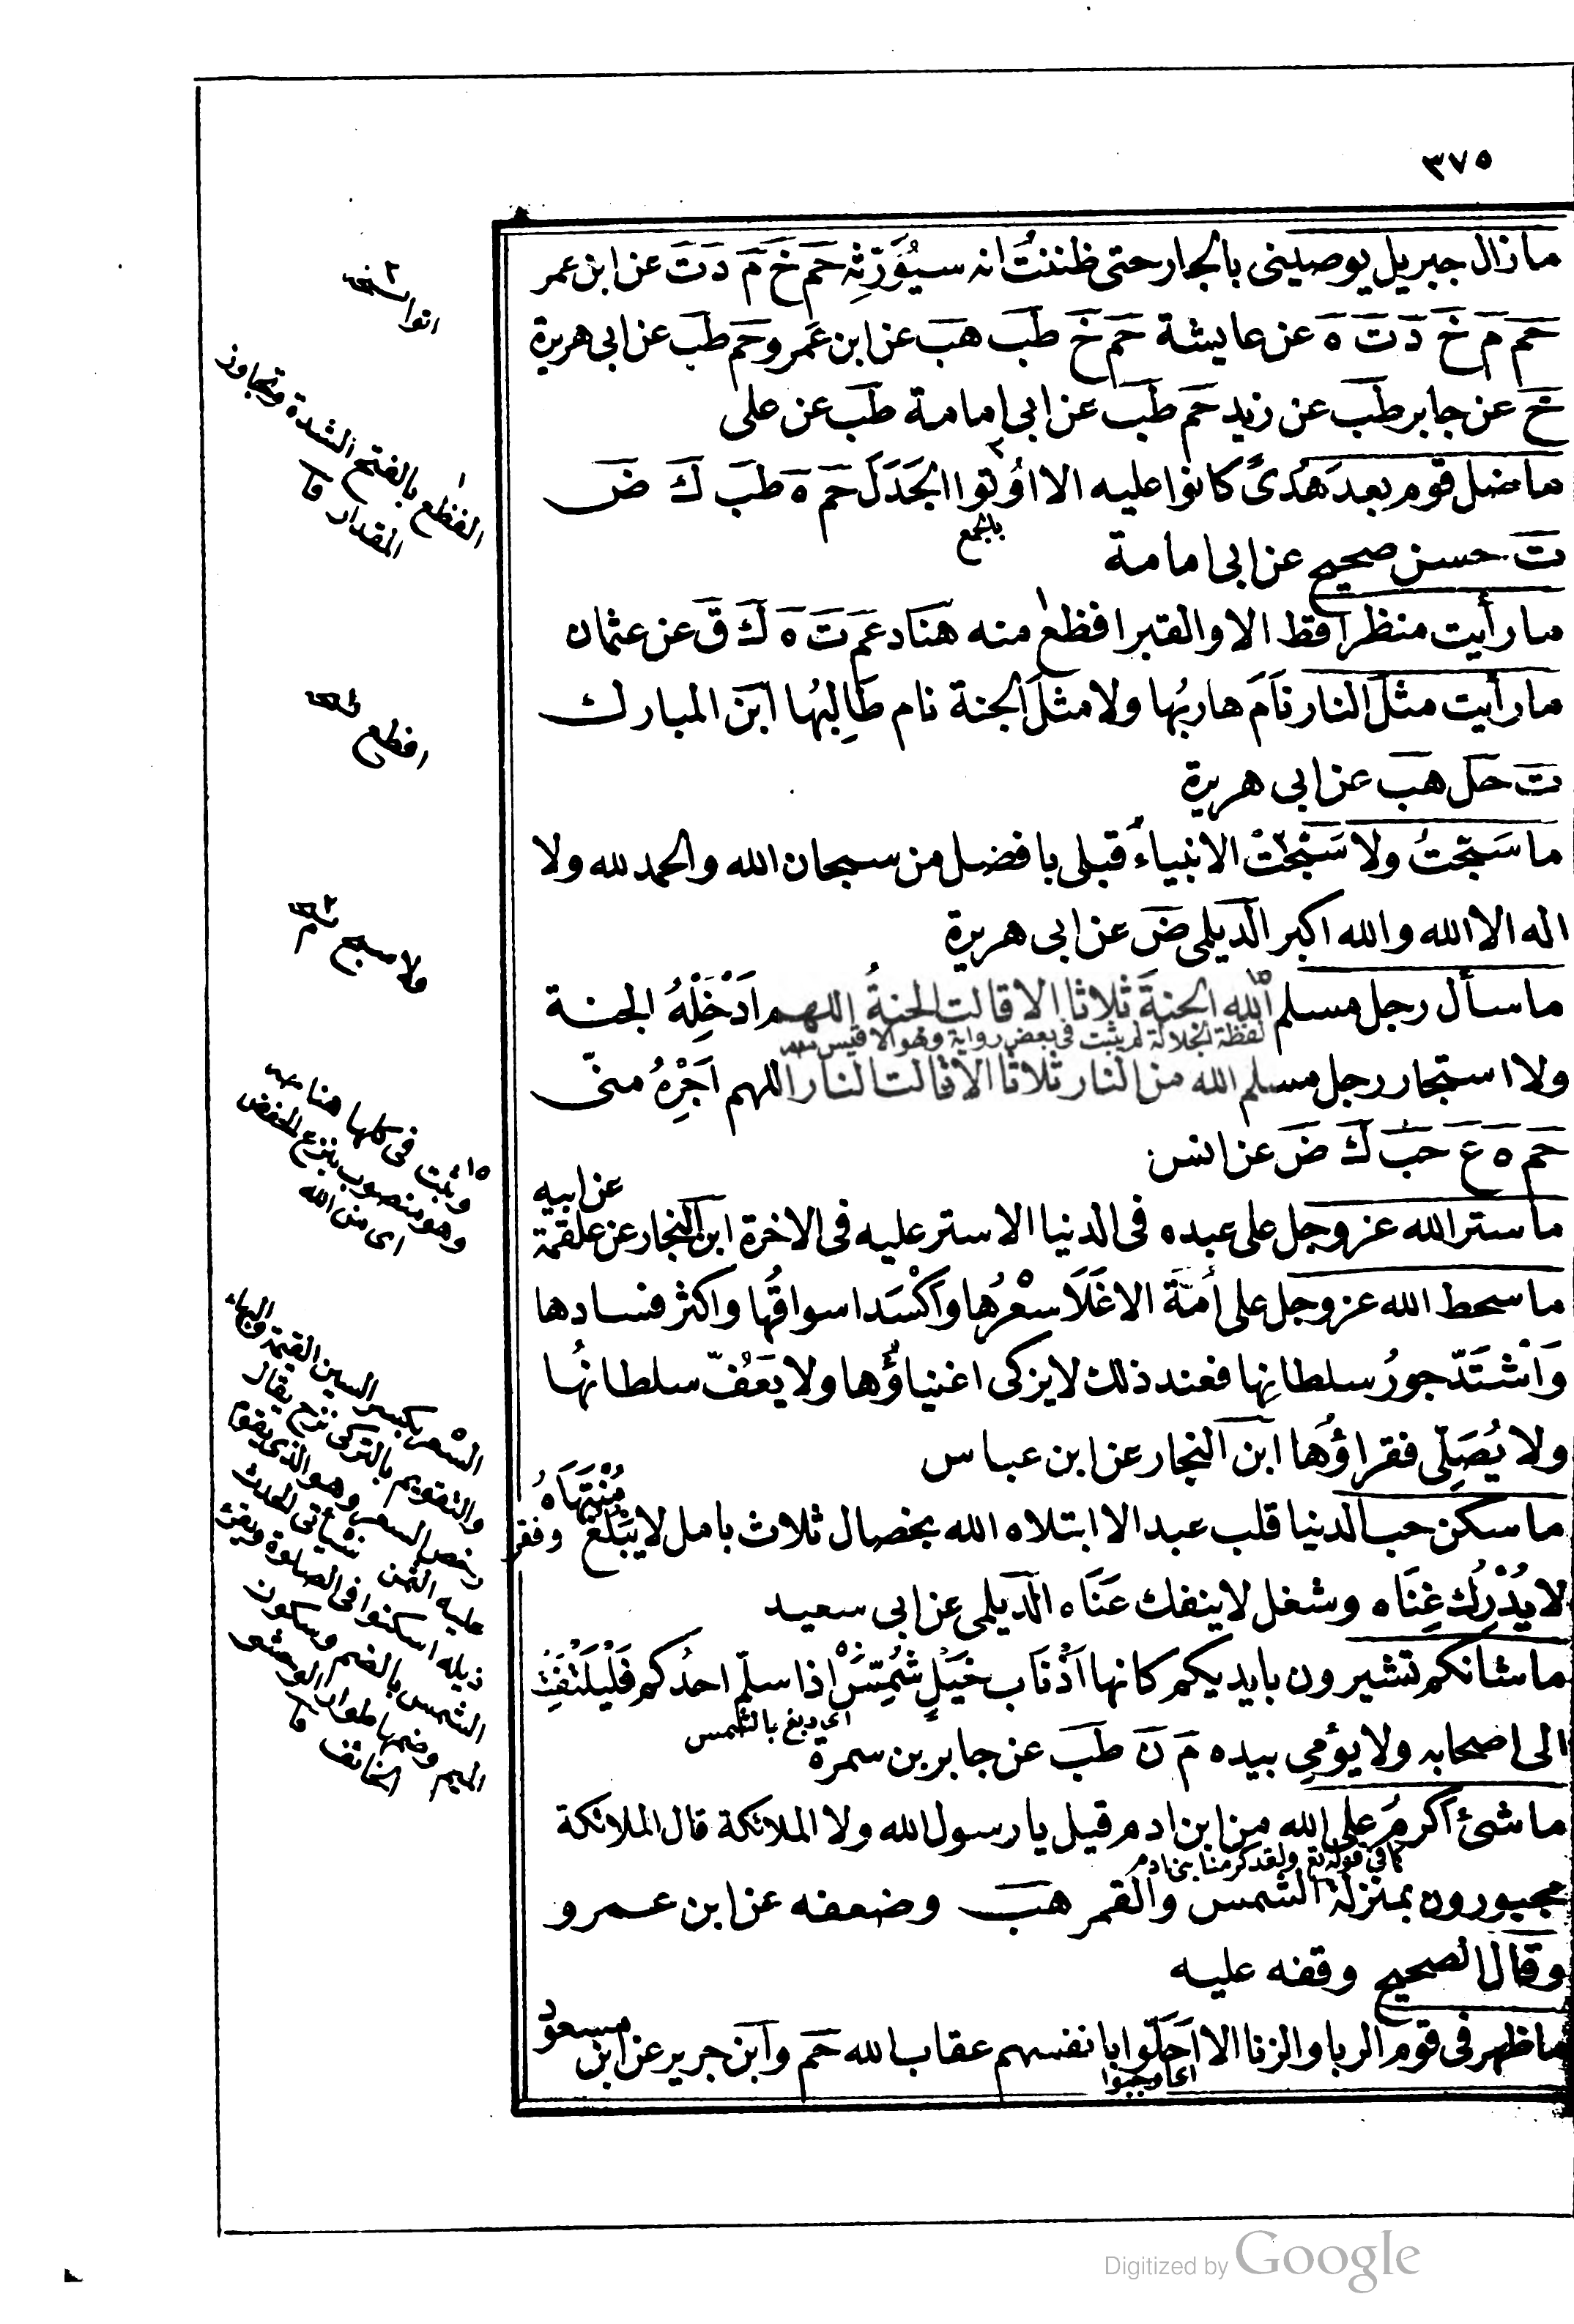 ٣٧٥
ما زال جبريل يوصينى بالجار حتى ظننت انه سيُوَرِّثه حم خ م د ت عن ابن عمر
حم م خ د ت ه عن عايشة حم خ طب هب عن ابن عمرو حم طب عن ابى هريرة
خ عن جابر طب عن زيد حم طب عن ابى امامة طب عن على
ما ضل قوم بعد هُدىً كانوا عليه الا اوُتوا الجَدَلَ حم ه طب ك ض
بالجمع
ت حسن صحيح عن ابى امامة
ما رأيت منظراً قط الا والقبر افظع منه هناد عم ت ه ك ق عن عثمان
ما رأيت مثلَ النار نَامَ هاربُها ولا مثلَ الجنة نام طَالِبُها ابن المبارك
ت حل هب عن ابى هريرة
ما سَبّحتُ ولا سَبّحَتْ الانبياءُ قبلى بافضل من سبحان الله والحمد لله ولا
اله الا الله والله اكبر الديلمى ض عن ابى هريرة
ما سأل رجل مسلم اللهَ الجنةَ ثلاثا الا قالت الجنةُ اللهم اَدْخِلْهُ الجنة
لفظة الجلالة لم يثبت فى بعض رواية وهو الاقيس
ولا استجار رجل مسلم الله من النار ثلاثا الا قالت النار اللهم اَجِرْهُ منّى
حم ه ع حب ك ض عن انس
ما ستر الله عز وجل على عبده فى الدنيا الا ستر عليه فى الاخرة ابن النجار عن علقمة
عن ابيه
ما سخط الله عز وجل على اُمّة الا غَلَا سعْرُها واَكْسَد اسواقُها واكثر فسادها
وَاشْتَدّ جورُ سلطانِها فعند ذلك لا يزكى اغنياؤُها ولا يَعُفّ سلطانُها
ولا يُصَلّى فقراؤُها ابن النجار عن ابن عباس
ما سكن حب الدنيا قلب عبد الا ابتلاه الله بخصال ثلاث بامل لا يَبْلُغ مُنْتَهَاهُ وفقر
لا يُدْرِك غِنَاه وشغل لا ينفك عَنَاه الديلمى عن ابى سعيد
ما شانكم تشيرون بايديكم كانها اَذْنَاب خَيْلٍ شُمُسٍ اذا سلّم احدُكم فَلْيَلْتَفِتْ
اى دبغ بالشمس
الى اصحابه ولا يؤمى بيده م ن طب عن جابر بن سمرة
ما شئ اَكرمُ على الله من ابن ادم قيل يا رسول الله ولا الملائكة قال الملائكة
كما فى قوله تع ولقد كرمنا بنى ادم
مجبورون بمنزلة الشمس والقمر هب وضعفه عن ابن عمرو
وقال الصحيح وقفه عليه
ما ظهر فى قوم الربا والزنا الا اَحَلّوا بانفسهم عقاب الله حم وابن جرير عن ابن مسعود
اى اوجبوا
الفظع بالفتح الشدة وتجاوز
المقدار
افظع
ولا سبح
وثبت فى كلها هنا
وهو منصوب بنزع الخفض
اى من الله
السعر بكسر السين القيمة والبهاء
والتقويم بالتركى نرح يقال
رخص السعر وهو الذى يقوم
عليه الثمن
الشمس بالضم وسكون
الميم وضمها
Digitized by Google